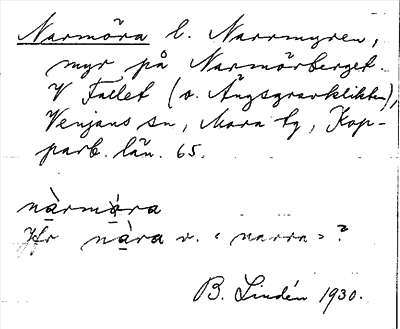 Narmöra l. Narrmyren,
myr på Narmörberget.
V Fallet (v. Ängsgravklitten),
Venjans sn, Mora tg, Kop-
parb. län. 65.
nàrmára
Hfr nàra v. "narra"?
B. Lindén 1930.